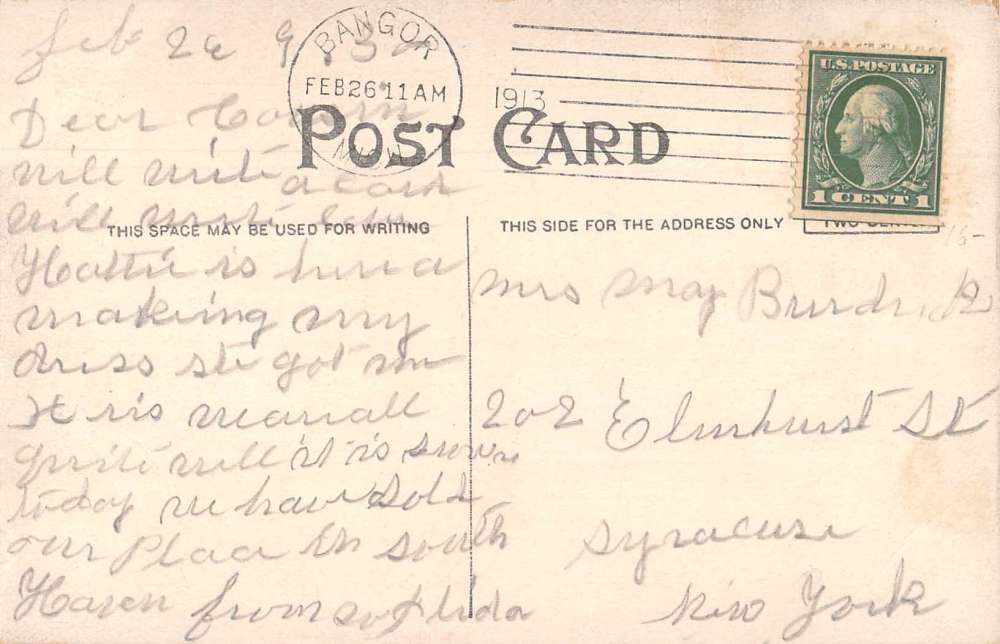 Feb 26 1913
BANGOR
FEB 26 11 AM
MICH.
1913
U.S. POSTAGE
1 CENT 1
POST CARD
THIS SPACE MAY BE USED FOR WRITING
THIS SIDE FOR THE ADDRESS ONLY
Dear Cousin
will write a card
will
Hattie is here a
making my
dress she got me
We are all
quite well it is snowing
today we have sold
our Place in South
Haven from
Mrs May Burdick
202 Elmhurst St
Syracuse
New York